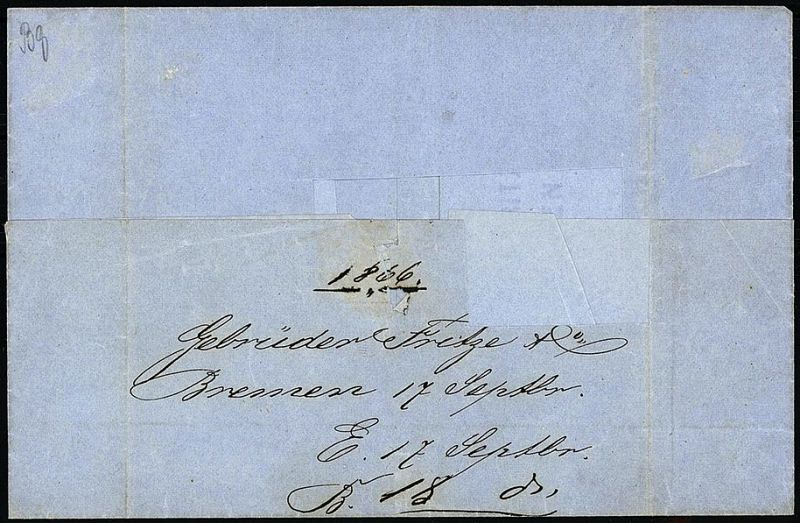 1866.
Gebrüder Fritze & Co
Bremen 17 Septbr.
E. 17 Septbr.
B. 18 do,